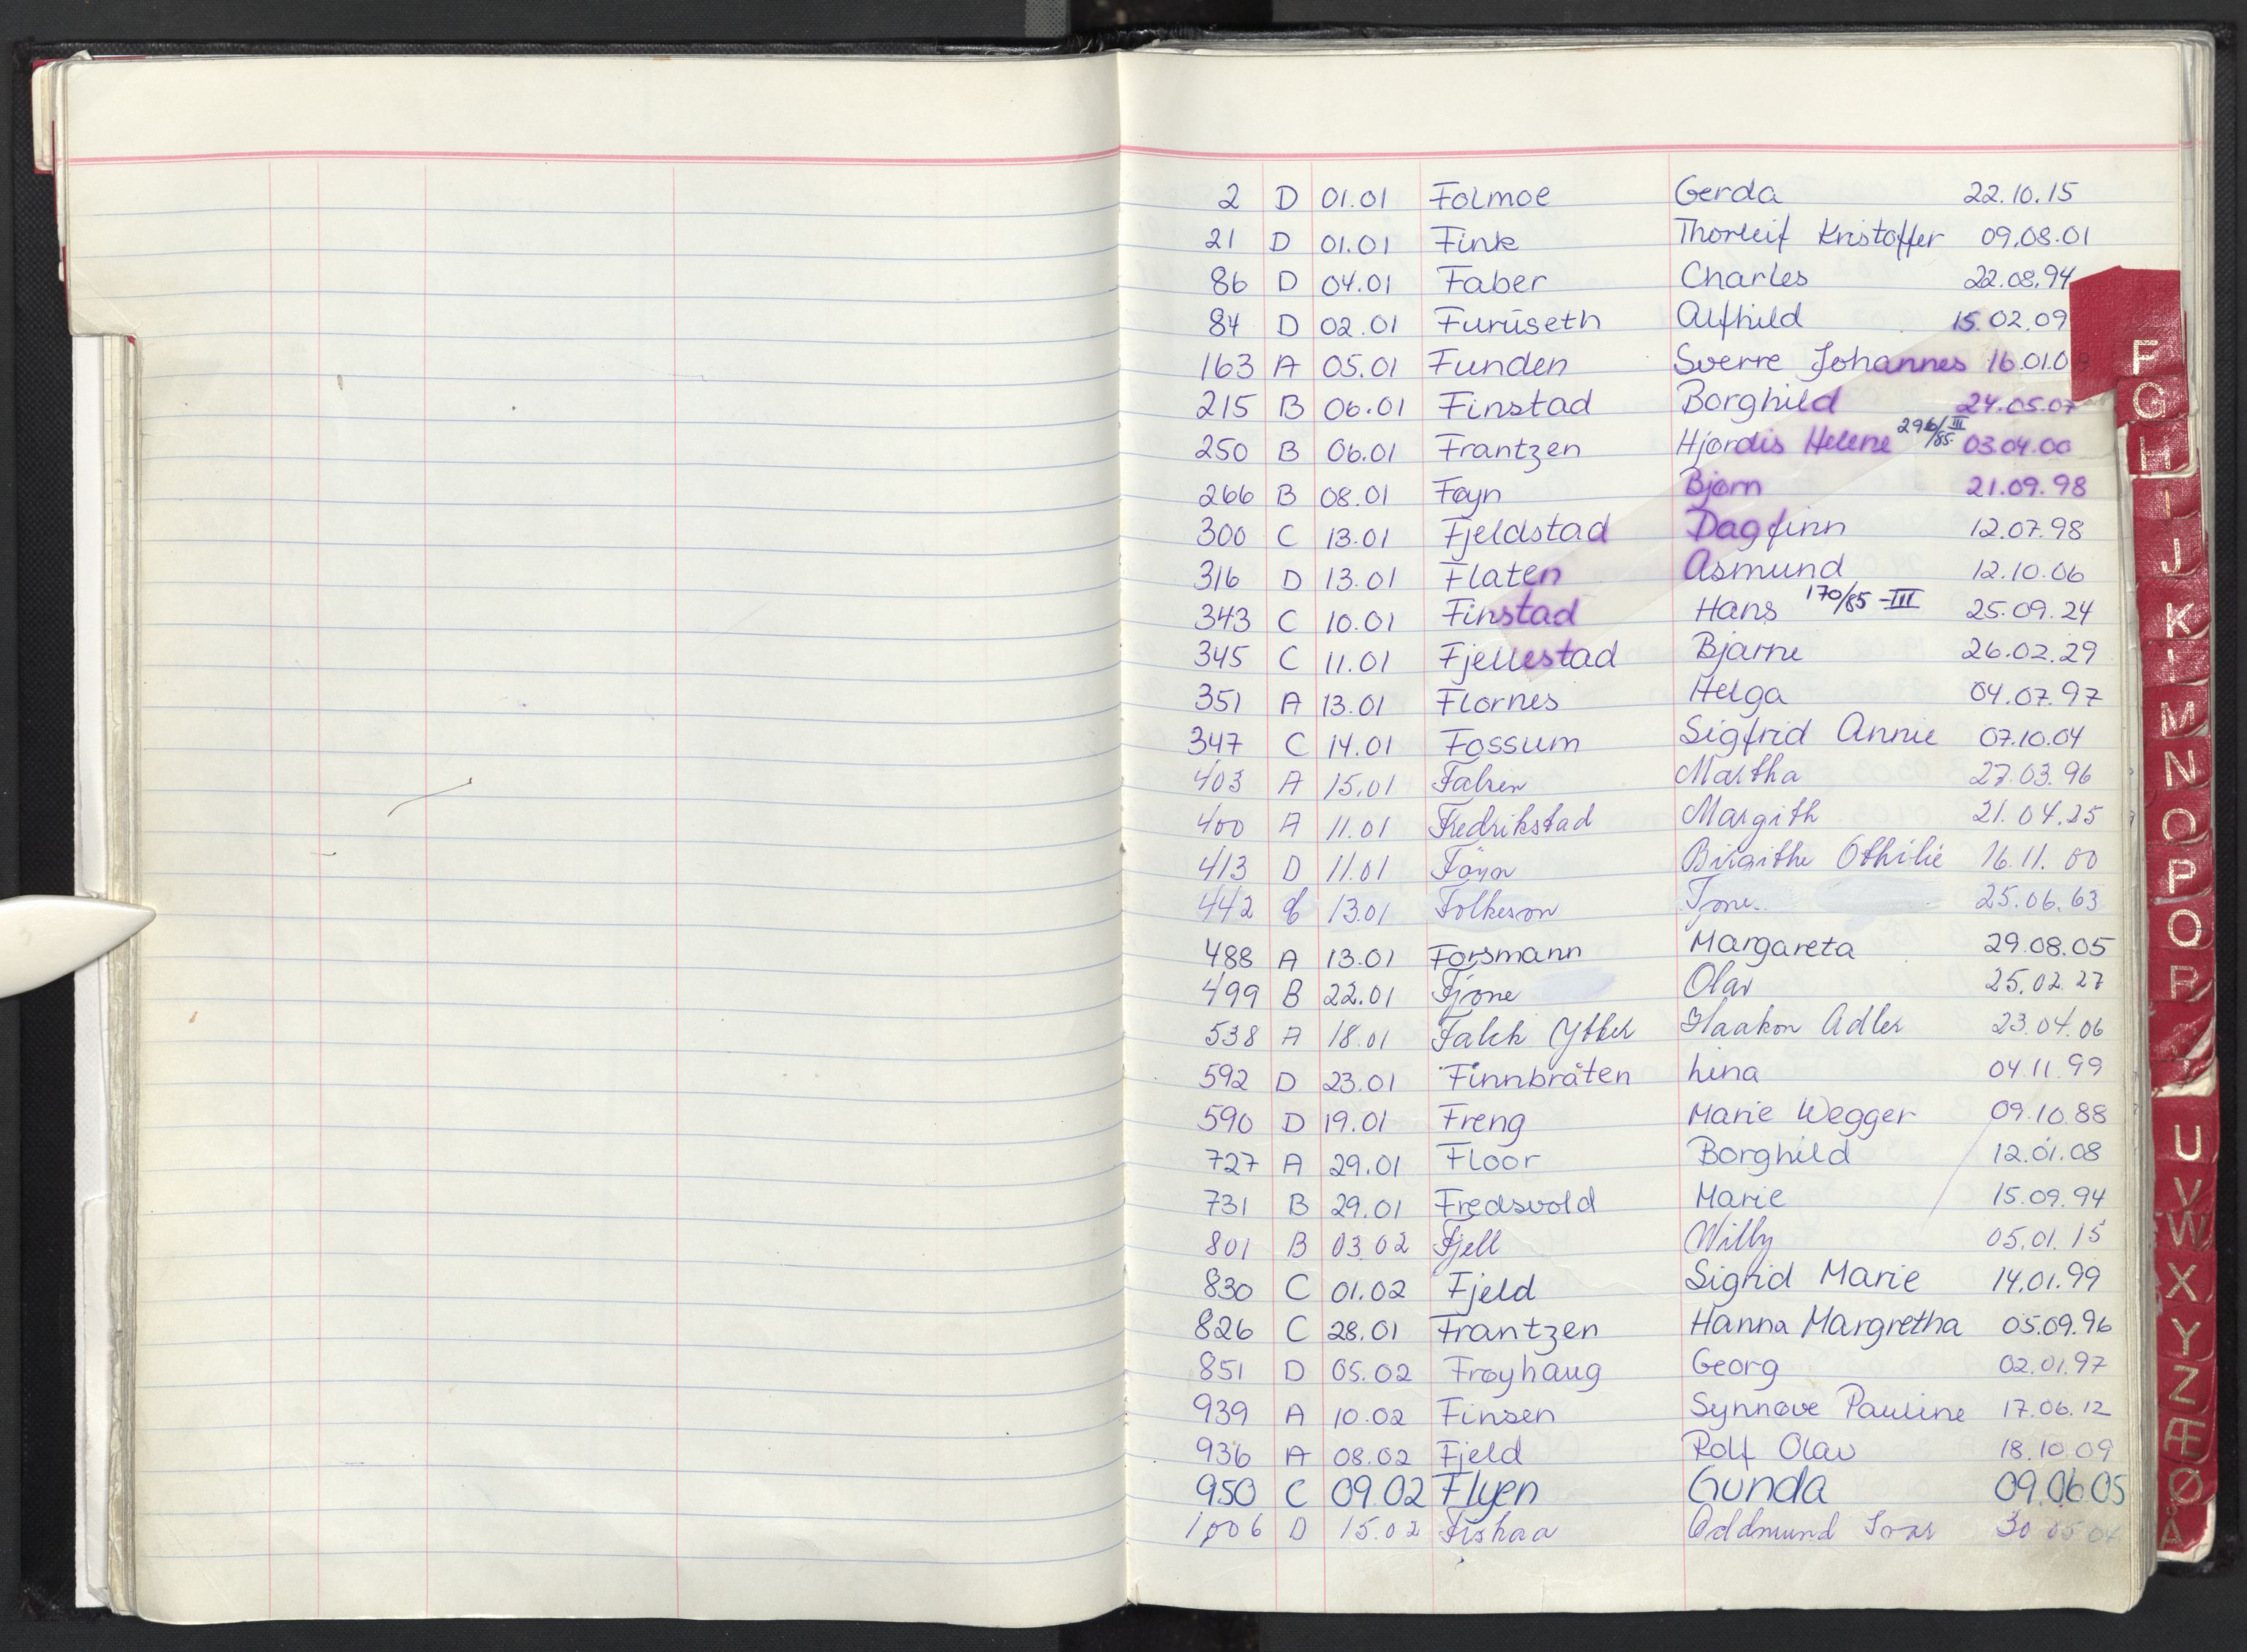 2 D 01.01 Folmoe Gerda 22.10.15
21 D 01.01 Fink Thorleif Kristoffer 09.08.01
86 D 04.01 Faber Charles 22.08.94
84 D 02.01 Furuseth Alfhild 15.02.09
163 A 05.01 Funden Sverre Johannes 16.01.0
215 B 06.01 Finstad Borghild 24.05.07
250 B 06.01 Frantzen Hjørdis Helene 296/III/85 03.04.00
266 B 08.01 Føyn Bjørn 21.09.98
300 C 13.01 Fjeldstad Dagfinn 12.07.98
316 D 13.01 Flaten Asmund 12.10.06
343 C 10.01 Finstad Hans 170/85-III 25.09.24
345 C 11.01 Fjellestad Bjarne 26.02.29
351 A 13.01 Flornes Helga 04.07.97
347 C 14.01 Fossum Sigfrid Annie 07.10.04
403 A 15.01 Martha 27.03.96
400 A 11.01 Fredrikstad Margith 21.04.25
413 D 11.01 Føyn Birgithe Othilie 16.11.00
442 13.01 Folkeson Tone 25.06.63
488 A 13.01 Forsmann Margareta 29.08.05
499 B 22.01 Fjone Olav 25.02.27
538 A 18.01 Falck Ytter Haakon Adler 23.04.06
592 D 23.01 Finnbråten Lina 04.11.99
590 D 19.01 Freng Marie Wegger 09.10.88
727 A 29.01 Floor Borghild 12.01.08
731 B 29.01 Fredsvold Marie 15.09.94
801 B 03.02 Fjell Willy 05.01.15
830 C 01.02 Fjeld Sigrid Marie 14.01.99
826 C 28.01 Frantzen Hanna Margretha 05.09.96
851 D 05.02 Frøyhaug Georg 02.01.97
939 A 10.02 Finsen Synnøve Pauline 17.06.12
936 A 08.02 Fjeld Rolf Olav 18.10.09
950 C 09.02 Flyen Gunda 09.06.05
1006 D 15.02 Fiskaa Oddmund Ivar 30 05
F
G
H
I
J
K
M
N
O
P
Q
R
U
V
W
X
Y
Z
Æ
Ø
Å